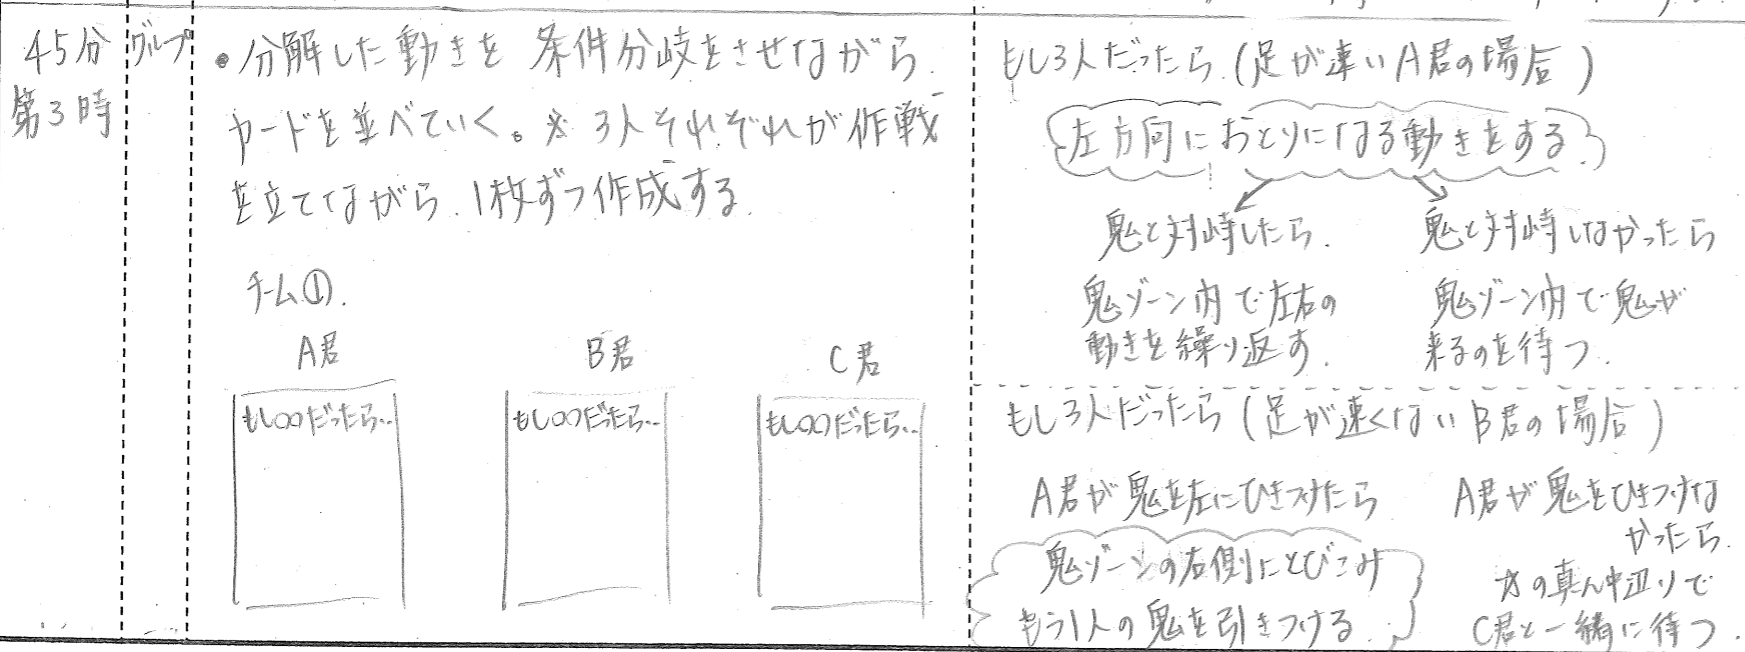 45分
第3時
グループ
・分解した動きを 条件分岐をさせながら
カードを並べていく。※3人それぞれが作戦
を立てながら、1枚ずつ作成する。
チーム①.
A君
B君
C君
もし○○だったら…
もし○○だったら…
もし○○だったら…
もし3人だったら、(足が速いA君の場合)
左方向におとりになる動きをする。
鬼と対峙したら、
鬼ゾーン内で左右の
動きを繰り返す。
鬼と対峙しなかったら
鬼ゾーン内で鬼が
来るのを待つ。
もし3人だったら(足が速くないB君の場合)
A君が鬼を左にひきつけたら
鬼ゾーンの右側にとびこみ
もう1人の鬼を引きつける。
A君が鬼をひきつけな
かったら、
の真ん中辺りで
C君と一緒に待つ。